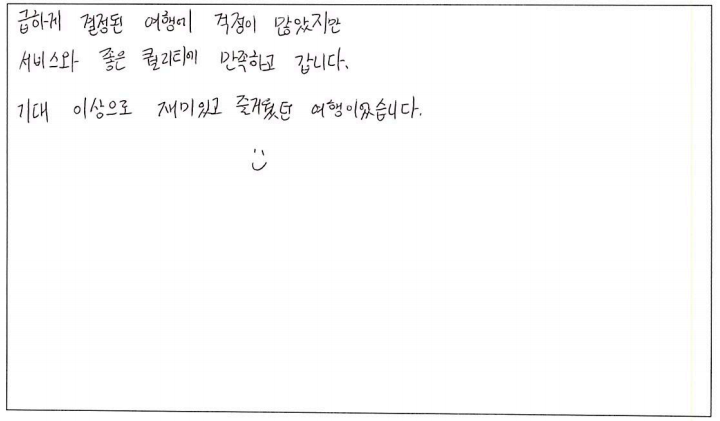 급하게 결정된 여행에 걱정이 많았지만
서비스와 좋은 퀄리티에 만족하고 갑니다.
기대 이상으로 재미있고 즐거웠던 여행이었습니다.